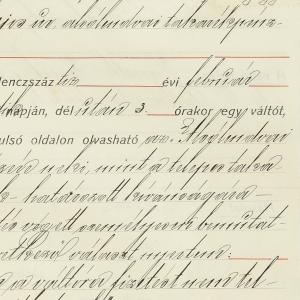 úr alsólendvai takarékpénz-
lenczszáz tíz évi február
napján, dél után 3 órakor egy váltót,
tulsó oldalon olvasható az Alsólendvai
neki, mint a telepes taka-
k határozott kivánságára
végett személyesen bemutat-
választ nyertem:
a váltóra fizetést nem tel-